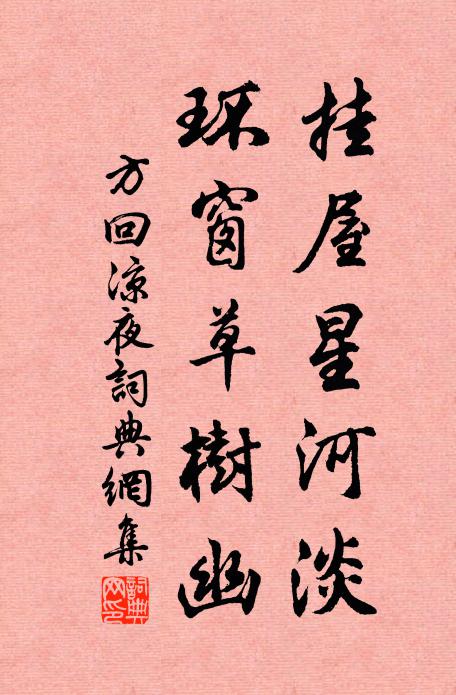 挂屋星河淡
环窗草樹幽
方回凉夜詞典網集
詞典